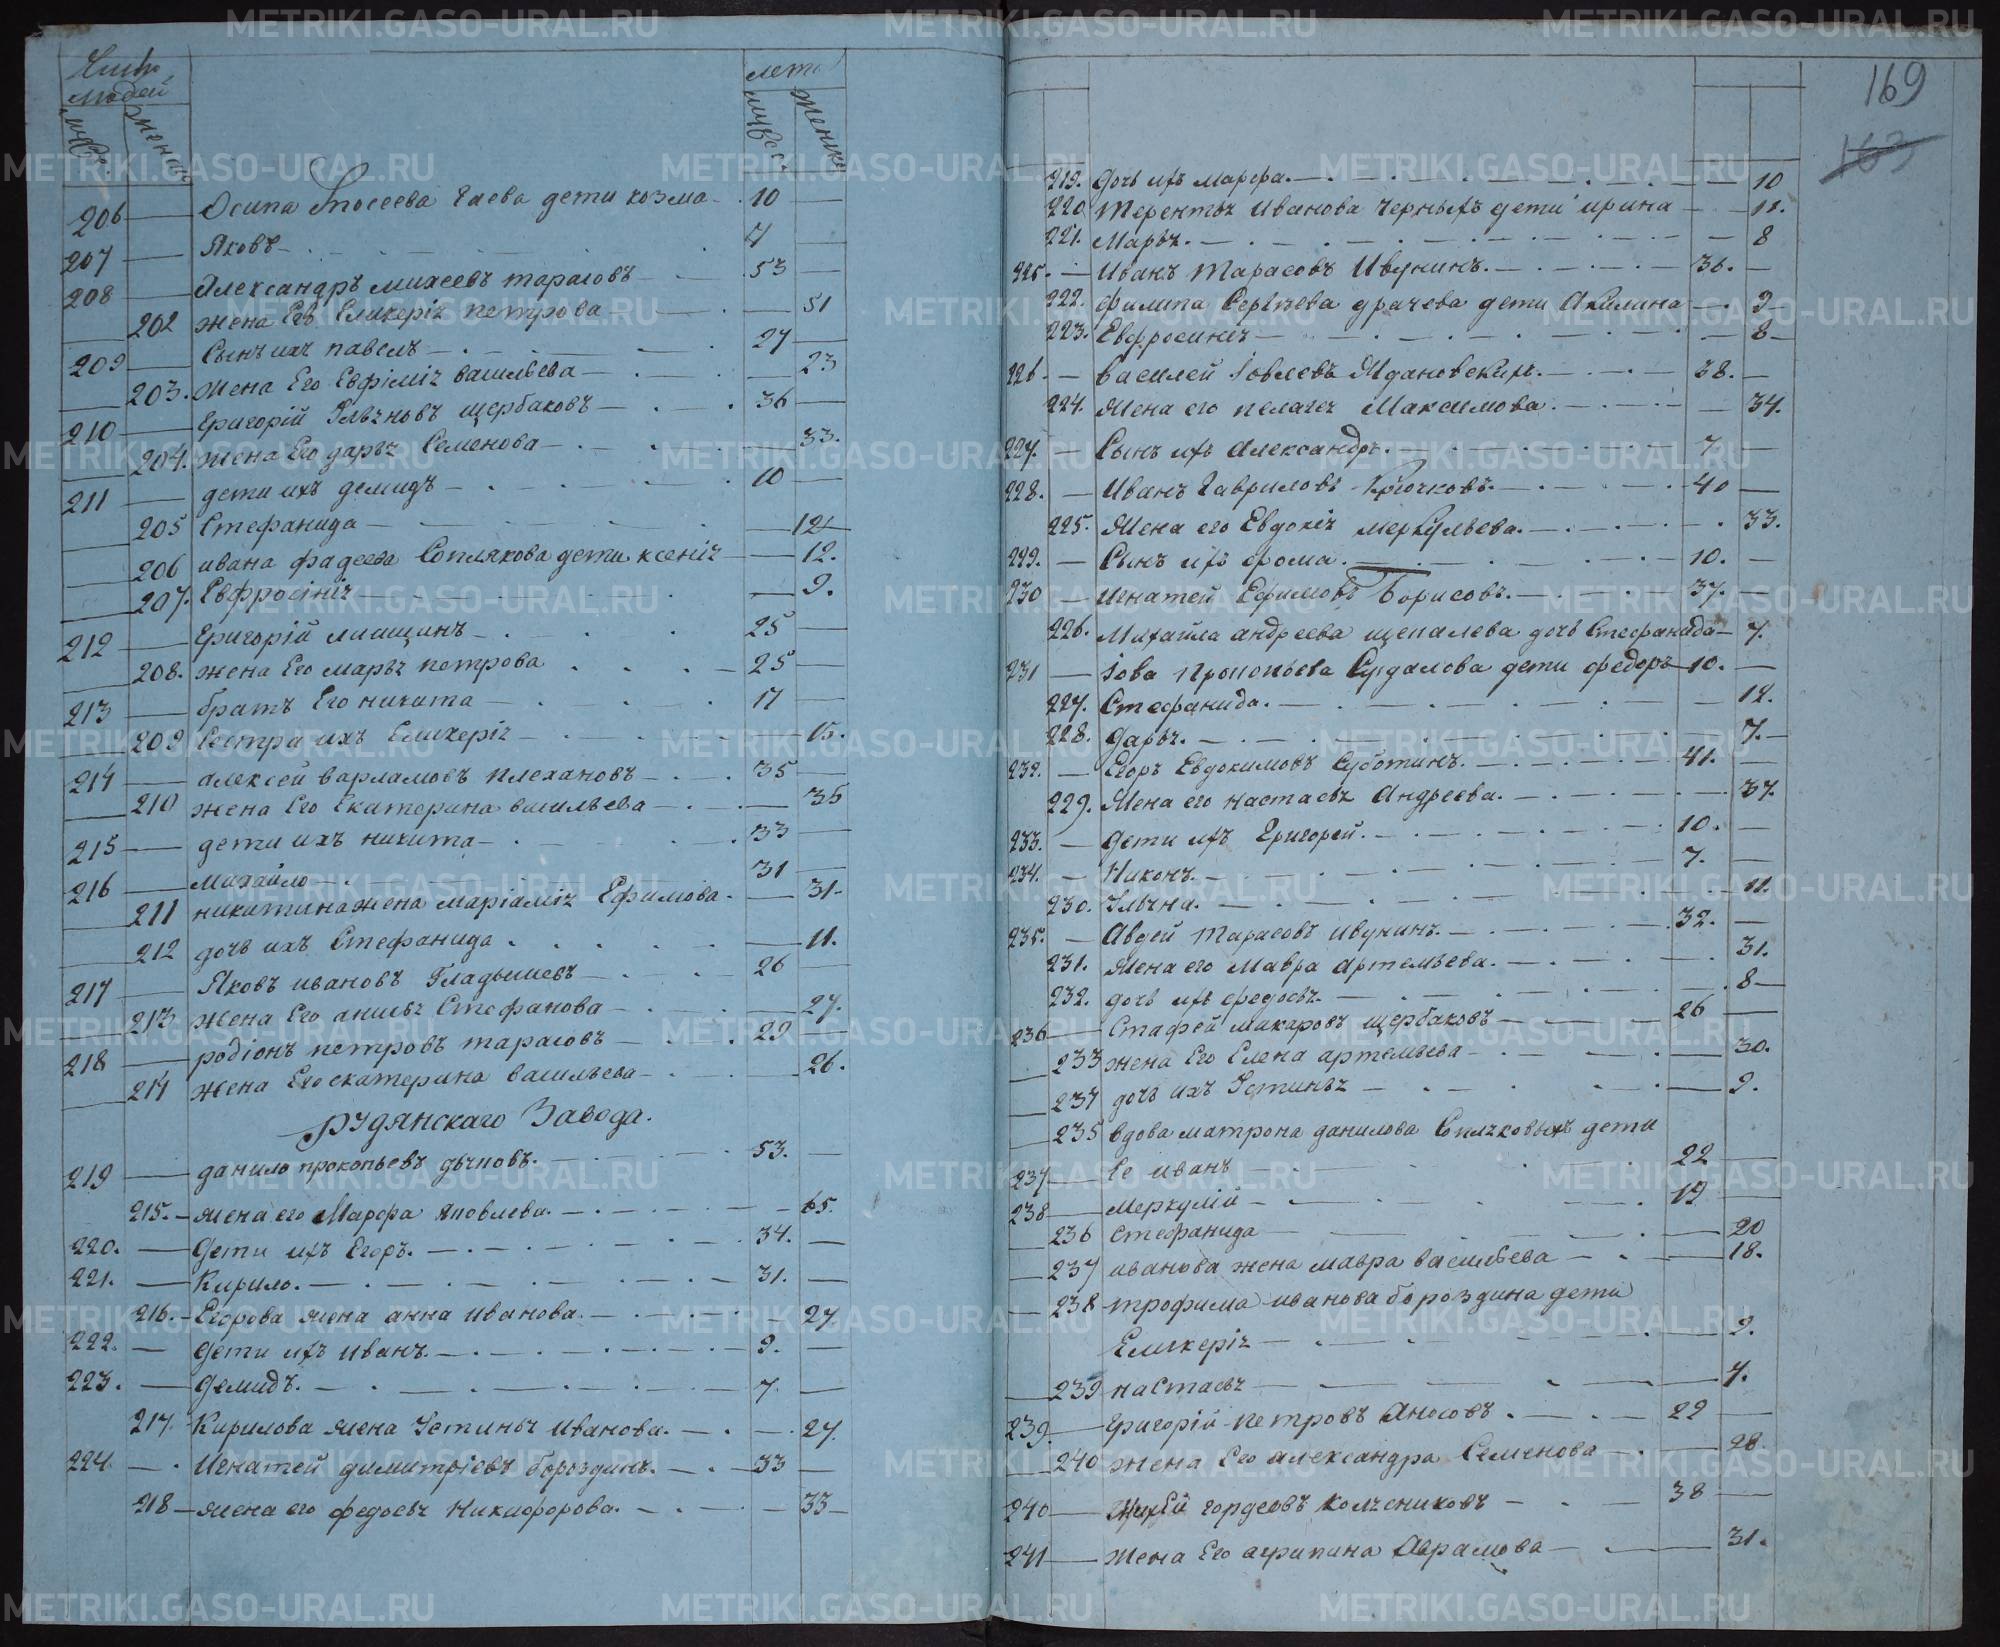 Число людей лета
муже. женск мужеск женск
206 — Осипа Моссева Гаева дети козма — 10 —
207 — Яковъ — —
208 — Александръ михеевъ тарасовъ — 53 —
202 жена Его Гликеріѧ петрова — 51
209 — Сынъ ихъ павелъ — 27 —
203. жена Его Евфиміѧ василѣева — 23
210 — Григорій Ульѧновъ щербаковъ — 36 —
204. жена Его дарьѧ Семенова — 33.
211 — дети ихъ демидъ — 10 —
205 Стефанида — 12
206 ивана фадеева Соплякова дети ксеніѧ — 12.
207. Евфросініѧ — 9.
212 — Григорій мищинъ — 25 —
208. жена Его марьѧ петрова 25 —
213 — братъ Его никита — 17 —
209 Сестра ихъ Гликеріѧ — 15.
214 — алексей варламовъ плехановъ — 35 —
210 жена Его Екатерина васильева — 35
215 — дети ихъ никита — 33 —
216 — михайло — 31 —
211 никитина жена маріаміѧ Ефимова. — 31.
212 дочь ихъ Стефанида — 11.
217 — Яковъ ивановъ Гладышевъ — 26 —
213 жена Его анисьѧ Стефанова — 27.
218 — родіонъ петровъ тарасовъ — 29 —
214 жена Его екатерина васильева — 26.
Рудянскаго Завода.
219 — данило прокопьевъ дьѧковъ. — 53. —
215. — жена его Марфа Яковлева. — 65.
220. — Дети ихъ Егоръ. — 34. —
221. — Кирило. — 31. —
216. — Егорова жена анна Иванова. — 27.
222. — Дети ихъ Иванъ. — 9. —
223. — Демидъ. — 7. —
217. Кирилова жена Устиньѧ Иванова. — 27.
224. — Игнатей димитріевъ бороздинъ. — 33 —
218 — жена его федосьѧ Никифорова. — 33 —
169
163
219. Дочь ихъ марфа. — 10
220 Терентьѧ Иванова Черныхъ дети ирина — 11.
221. Марьѧ. — 8
225. — Иванъ Тарасовъ Ивунинъ. — 36. —
222. филипа Сергѣева грачева дети Акилина — 9
223. Евфросиньѧ — 8 —
226. — Василей Іовлевъ Ждановскихъ. — 38. —
224. Жена его пелагеѧ Максимова. — 34.
227. — Сынъ ихъ Александръ. 7 —
228. — Иванъ Гавриловъ Крючковъ. — 40 —
225. Жена его Евдокіѧ меркульева. — 33.
229. — Сынъ ихъ фома. — 10. —
230 — Игнатей Ефимовъ Борисовъ. — 37. —
226. Михаила андреева щепалева дочь Стефанида — 7.
231 — Іова Прокопьева Сундалова дети федоръ — 10. —
227. Стефанида. — 12.
228. Дарьѧ. — 7. —
232. — Егоръ Евдокимовъ Суботинъ. — 41. —
229. Жена его настасьѧ Андреева. — 37.
233. — Дети ихъ Григорей. — 10. —
234. — Никонъ. — 7. —
230. Ульѧна. — 11.
235. — Авдей Тарасовъ ивунинъ. — 32. —
231. Жена его Мавра артемьева. — 31.
232. дочь ихъ федосьѧ. — 8 —
236 — Стафей макаровъ щербаковъ — 26 —
233 жена Его Елена артемьева — 30.
237 дочь ихъ Устиньѧ — 9.
235 вдова матрона данилова Соплѧковыхъ дети
237 — Ее иванъ — 22 —
238 — меркулій — 19 —
236 стефанида — 20
237 иванова жена мавра василѣева — 18.
238 трофима иванова бороздина дети
Гликеріѧ — 9.
239 настасьѧ — 4.
239. — Григорій петровъ Аносовъ — 22 —
240 жена Его александра Семенова — 28
240 — гордеовъ колѧсниковъ — 38 —
241 — жена Его агрипина Аврамова — 31.
METRIKI.GASO-URAL.RU